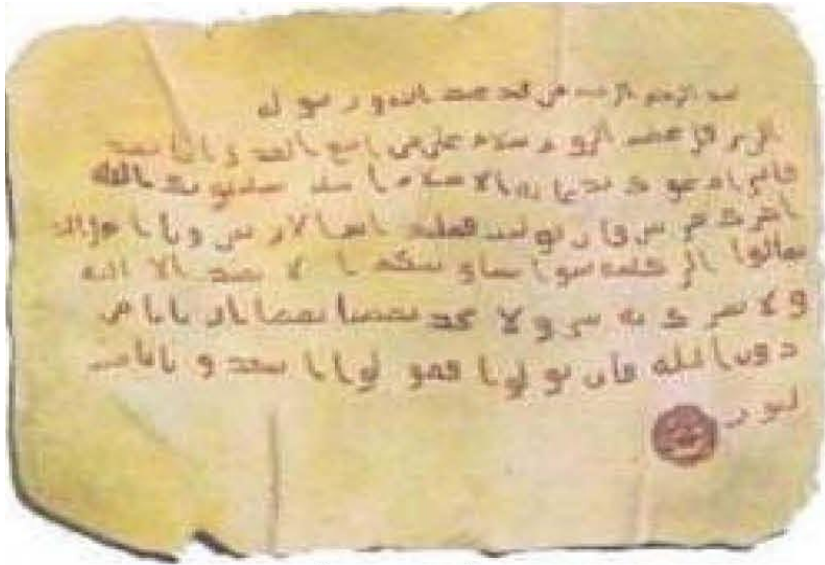 الرحمن الرحيم من محمد عبد الله ورسول
عظيم الروم سلام على من اتبع الهدى اما بعد
فانى ادعوك بدعاية الاسلام اسلم تسلم يوتك الله
اجرك مرتين فان توليت فعليك اثم الاريسين ويا اهل
تعالوا الى كلمة سوا بيننا وبينكم ا لا نعبد الا الله
ولا نشرك به ولا يتخذ بعضنا بعضا اربابا من
دون الله فان تولوا فقولوا اشهدوا بانا مس
لمون